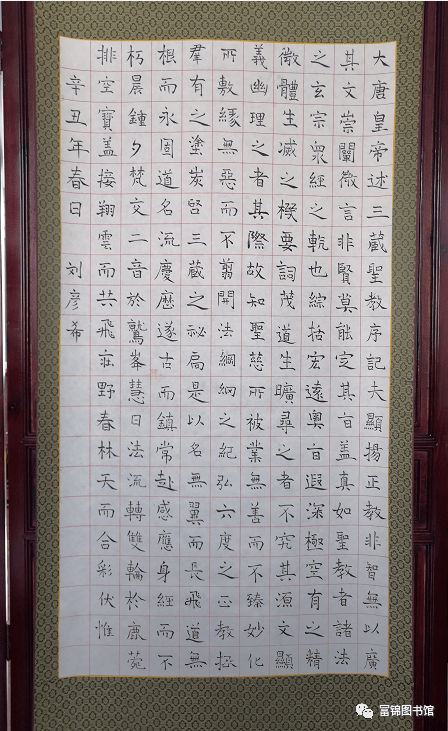 大唐皇帝述三蔵聖教序記夫顯揚正教非智無以廣
其文崇闡微言非賢莫能定其旨盖真如聖教者諸法
之玄宗衆經之軌也綜括宏遠奧旨遐深極空有之精
微體生滅之機要詞茂道生曠尋之者不究其源文顯
義幽理之者其際故知聖慈所被業無善而不臻妙化
所敷緣無惡而不翦開法綱綱之紀弘六度之正教拯
羣有之塗炭啓三蔵之秘扃是以名無翼而長飛道無
根而永固道名流慶歷遂古而鎮常赴感應身經而不
朽晨鐘夕梵交二音於鷲峯慧日法流轉雙輪於鹿菀
排空寶盖接翔雲而共飛莊野春林天而合彩伏惟
辛丑年春日 刘彦希
富锦图书馆